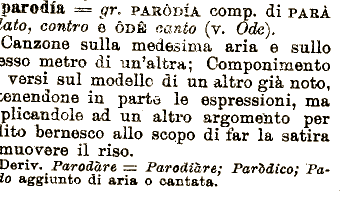 parodía = gr. PARÔDÍA comp. di PARÀ
lato, contro e ÔDÊ canto (v. Ode).
Canzone sulla medesima aria e sullo
esso metro di un'altra; Componimento
versi sul modello di un altro già noto,
enendone in parte le espressioni, ma
plicandole ad un altro argomento per
lito bernesco allo scopo di far la satira
muovere il riso.
Deriv. Parodàre = Parodiàre; Paròdico; Pa-
do aggiunto di aria o cantata.